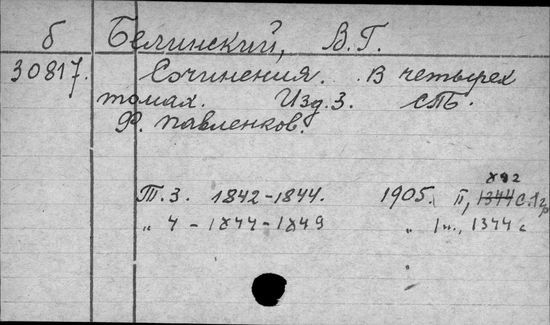 б Белинский, В.Г.
30817. Сочинения. В четырех
томах. Изд. 3. СПБ.
Ф. Павленков.
892
Т. 3. 1842-1844. 1905. II, 1344 с. 1 г
„ 4 - 1844-1849 „ 1344 с